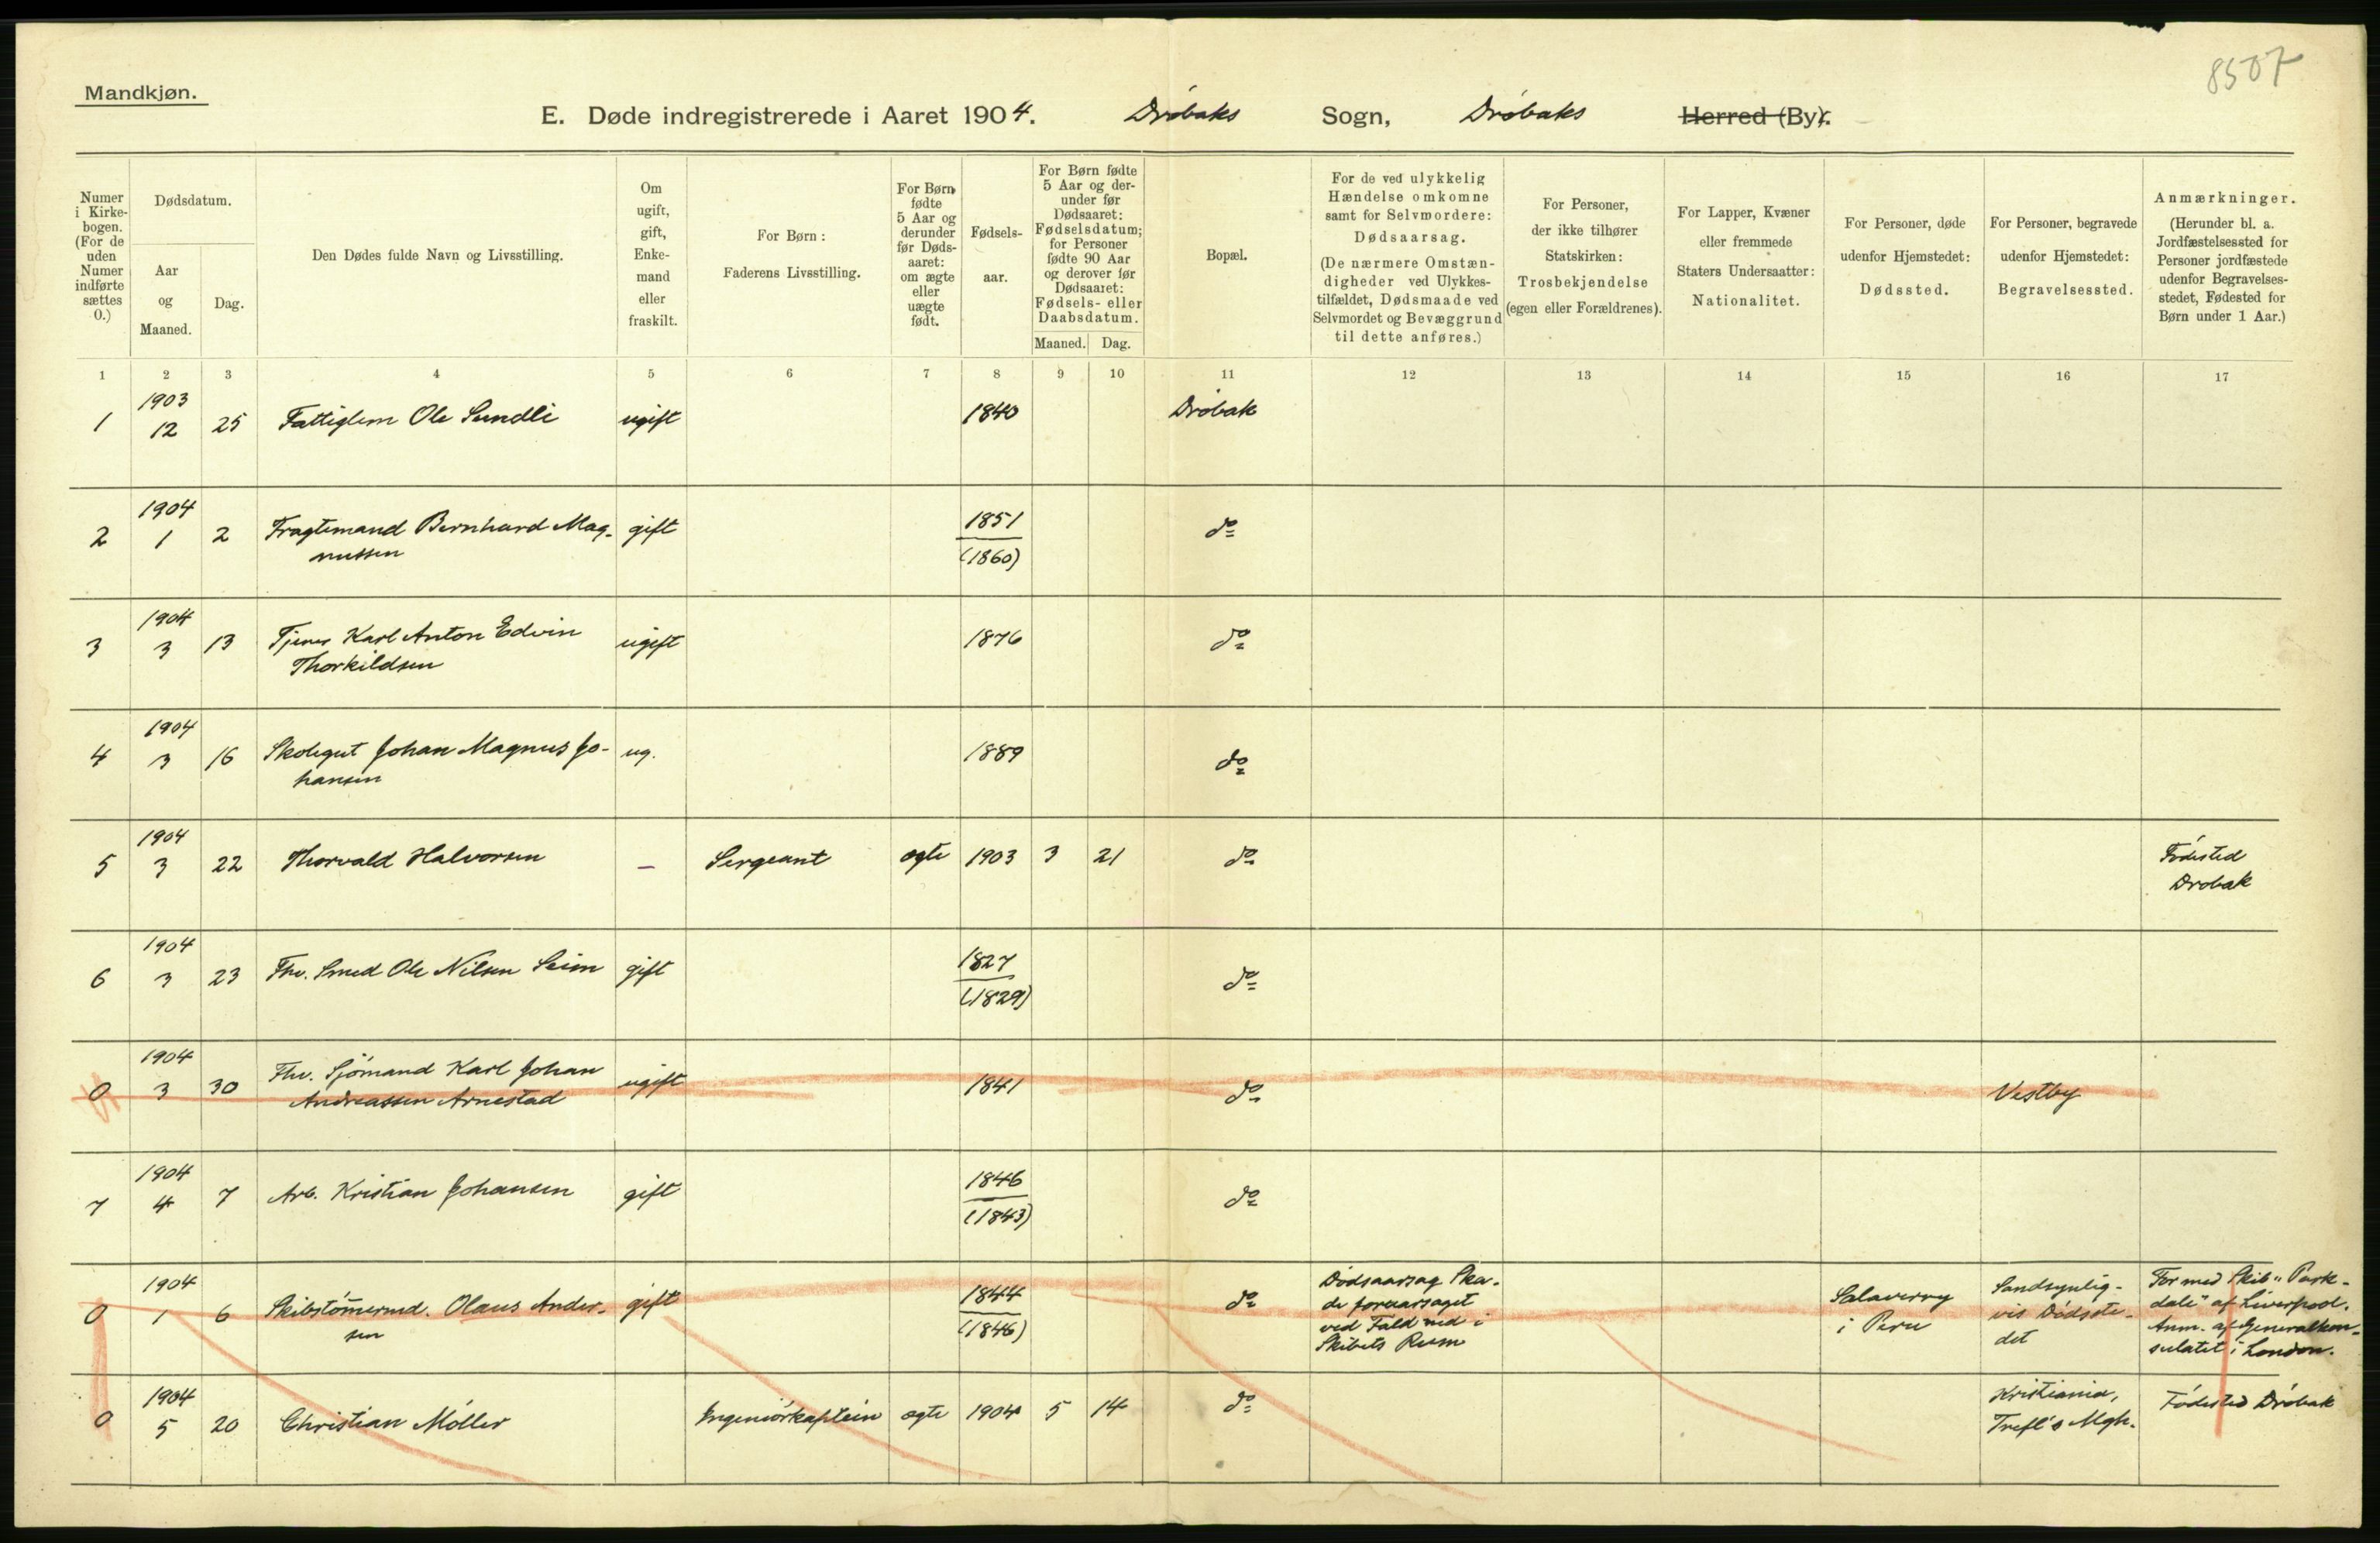 8507
Mandkjøn.
E. Døde indregistrerede i Aaret 1904. Drøbaks Sogn, Drøbaks Herred (By).
Numer
i Kirke-
bogen.
(For de
uden
Numer
indførte
sættes
0.)
Dødsdatum.
Aar
og
Maaned.
Dag.
Den Dødes fulde Navn og Livsstilling.
Om
ugift,
gift,
Enke-
mand
eller
fraskilt.
For Børn:
Faderens Livsstilling.
For Børn
fødte
5 Aar og
derunder
før Døds-
aaret:
om ægte
eller
uægte
født.
Fødsels-
aar.
For Børn fødte
5 Aar og der-
under før
Dødsaaret:
Fødselsdatum;
for Personer
fødte 90 Aar
og derover før
Dødsaaret:
Fødsels- eller
Daabsdatum.
Maaned. Dag.
Bopæl.
For de ved ulykkelig
Hændelse omkomne
samt for Selvmordere:
Dødsaarsag.
(De nærmere Omstæn-
digheder ved Ulykkes-
tilfældet, Dødsmaade ved
Selvmordet og Bevæggrund
til dette anføres.)
For Personer,
der ikke tilhører
Statskirken:
Trosbekjendelse
(egen eller Forældrenes).
For Lapper, Kvæner
eller fremmede
Staters Undersaatter:
Nationalitet.
For Personer, døde
udenfor Hjemstedet:
Dødssted.
For Personer, begravede
udenfor Hjemstedet:
Begravelsessted.
Anmærkninger.
(Herunder bl. a.
Jordfæstelsessted for
Personer jordfæstede
udenfor Begravelses-
stedet, Fødested for
Børn under 1 Aar.)
1 2 3 4 5 6 7 8 9 10 11 12 13 14 15 16 17
1903
1 12 25 Fattiglem Ole Sundli ugift 1840 Drøbak
1904
2 1 2 Fragtemand Bernhard Mag- gift 1851 do
nussen (1860)
1904
3 3 13 Tjener Karl Anton Edvin ugift 1876 do
Thorkildsen
1904
4 3 16 Skolegut Johan Magnus Jo- ug. 1889 do
hansen
1904
5 3 22 Thorvald Halvorsen — Sergeant ægte 1903 3 21 do Fødested
Drøbak
1904
6 3 23 Fhv. Smed Ole Nilsen Seim gift 1827 do
(1829)
1904
0 3 30 Fhv. Sjømand Karl Johan ugift 1841 do Vestby
Andreassen Arnestad
1904
7 4 7 Arb. Kristian Johansen gift 1846 do
(1843)
1904
0 1 6 Skibstømermd. Olaus Ander- gift 1844 do
sen (1846)
Dødsaarsag Ska-
de foraarsaget
ved Fald ned i
Skibets Rum
Salaverry
i Peru
Sandsynlig-
vis Dødsste-
det
For med Skib "Park-
dale" af Liverpool.
Anm. af Generalkon-
sulatet i London.
1904
0 5 20 Christian Møller Ingeniørkaptein ægte 1904 5 14 do
Kristiania,
Trefl's Mgh.
Fødested Drøbak